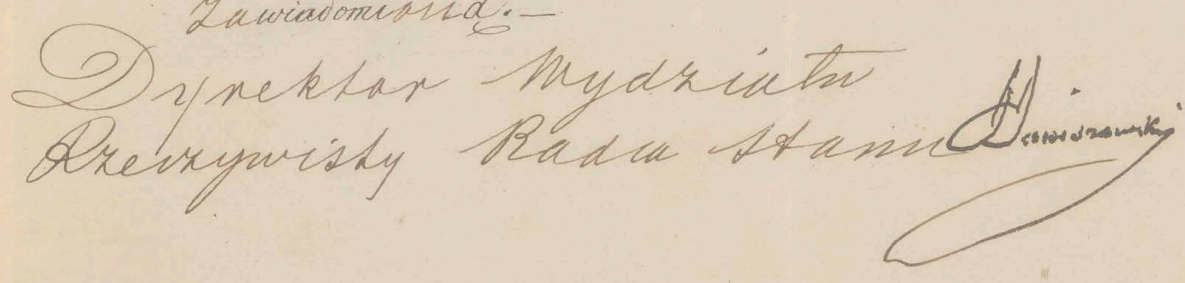 zawiadomioną.—
Dyrektor Wydziału
Rzeczywisty Radca Stanu